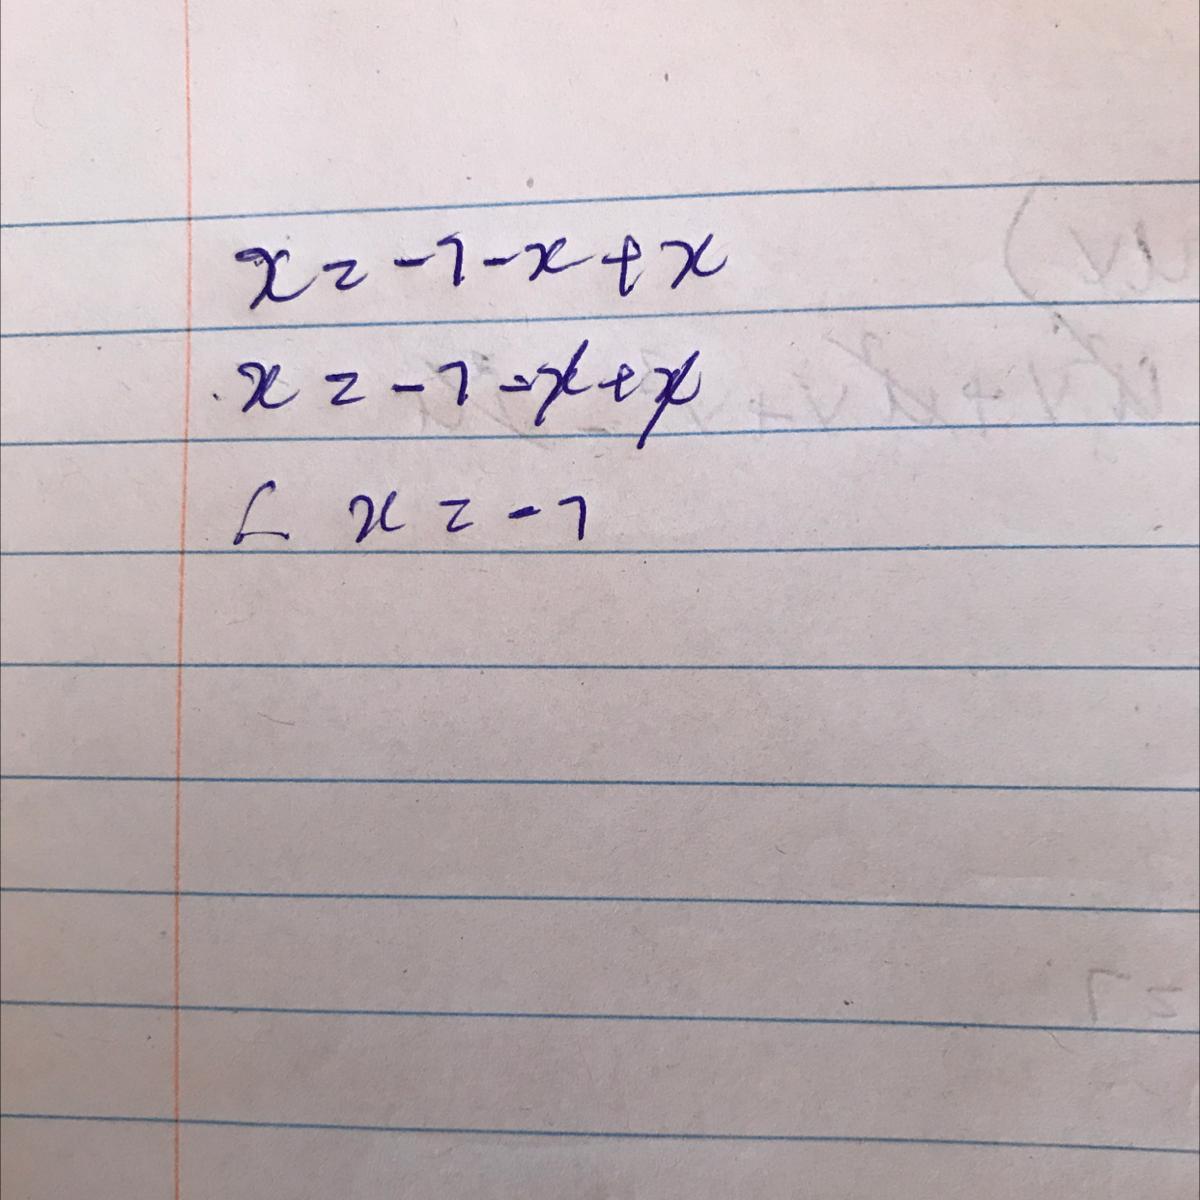 x = -7 - x + x
x = -7 - x + x
∠ x = -7